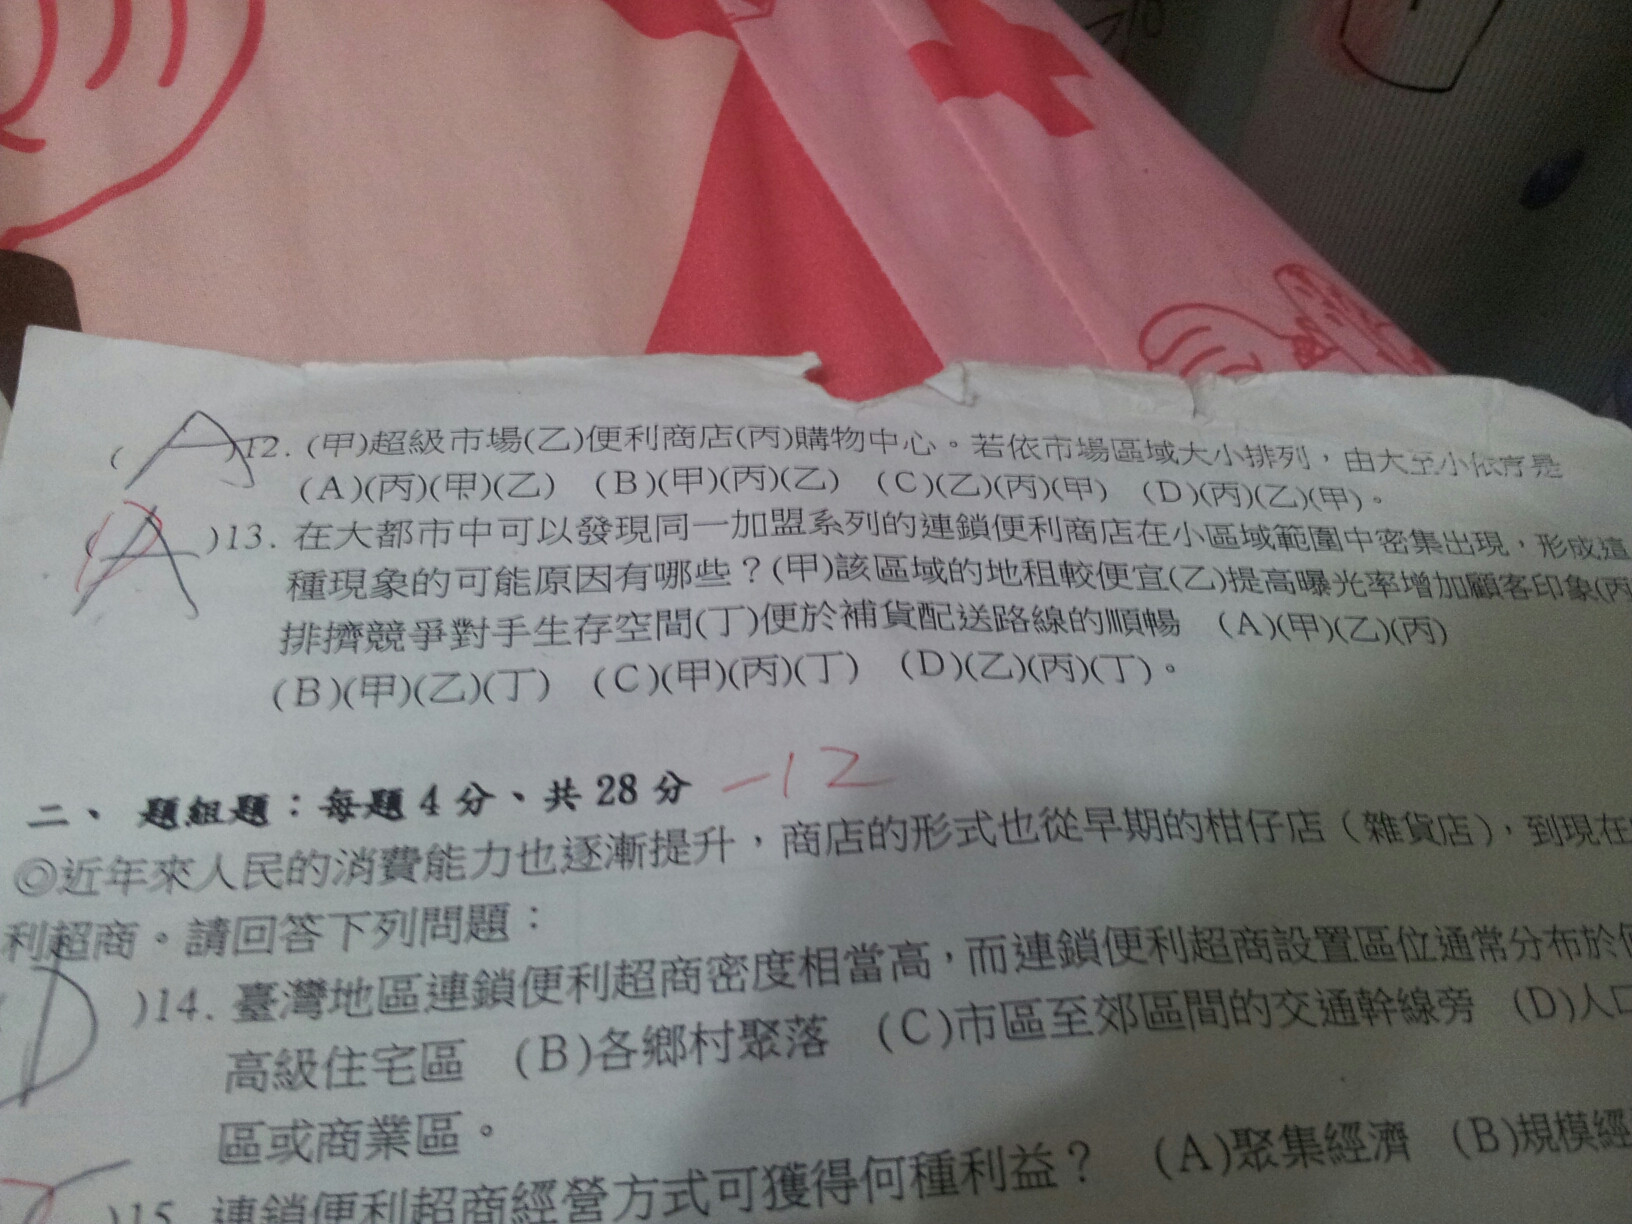 ( A )12. (甲)超級市場(乙)便利商店(丙)購物中心。若依市場區域大小排列，由大至小依序是
(A)(丙)(甲)(乙) (B)(甲)(丙)(乙) (C)(乙)(丙)(甲) (D)(丙)(乙)(甲)。
( A )13. 在大都市中可以發現同一加盟系列的連鎖便利商店在小區域範圍中密集出現，形成這
種現象的可能原因有哪些？(甲)該區域的地租較便宜(乙)提高曝光率增加顧客印象(丙
排擠競爭對手生存空間(丁)便於補貨配送路線的順暢 (A)(甲)(乙)(丙)
(B)(甲)(乙)(丁) (C)(甲)(丙)(丁) (D)(乙)(丙)(丁)。
二、題組題：每題4分、共28分 -12
◎近年來人民的消費能力也逐漸提升，商店的形式也從早期的柑仔店（雜貨店），到現在
利超商。請回答下列問題：
D )14. 臺灣地區連鎖便利超商密度相當高，而連鎖便利超商設置區位通常分布於
高級住宅區 (B)各鄉村聚落 (C)市區至郊區間的交通幹線旁 (D)人口
區或商業區。
)15. 連鎖便利超商經營方式可獲得何種利益？ (A)聚集經濟 (B)規模經